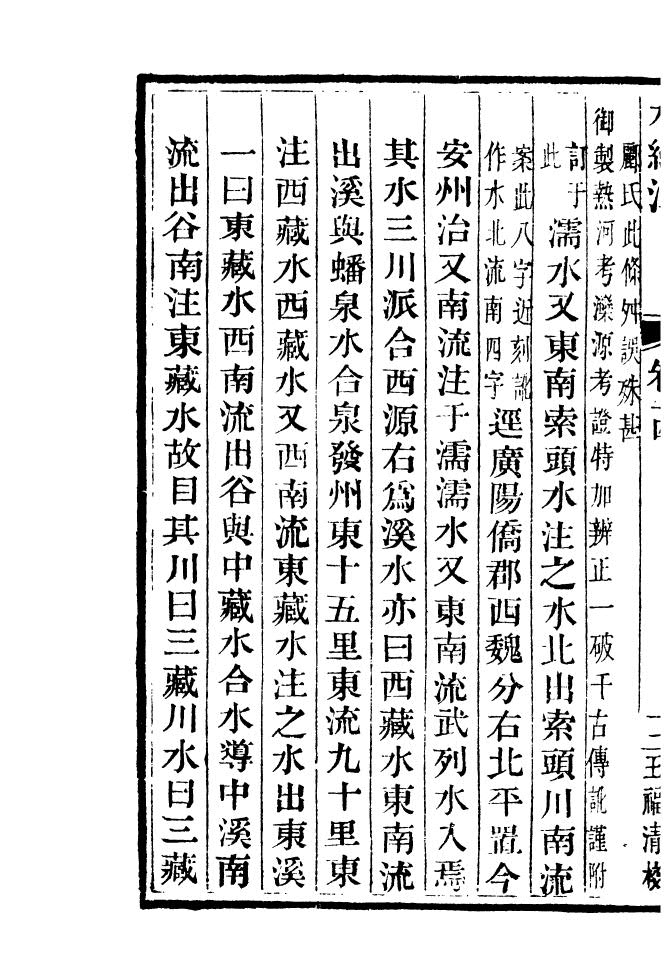 水經注 卷十四 二 王福清校
酈氏此條舛誤殊甚
御製熱河考灤源考證特加辨正一破千古傳訛謹附
訂于
此
濡水又東南索頭水注之水北出索頭川南流
案此八字近刻訛
作水北流南四字
逕廣陽僑郡西魏分右北平置今
安州治又南流注于濡濡水又東南流武列水入焉
其水三川派合西源右爲溪水亦曰西藏水東南流
出溪與蟠泉水合泉發州東十五里東流九十里東
注西藏水西藏水又西南流東藏水注之水出東溪
一曰東藏水西南流出谷與中藏水合水導中溪南
流出谷南注東藏水故目其川曰三藏川水曰三藏